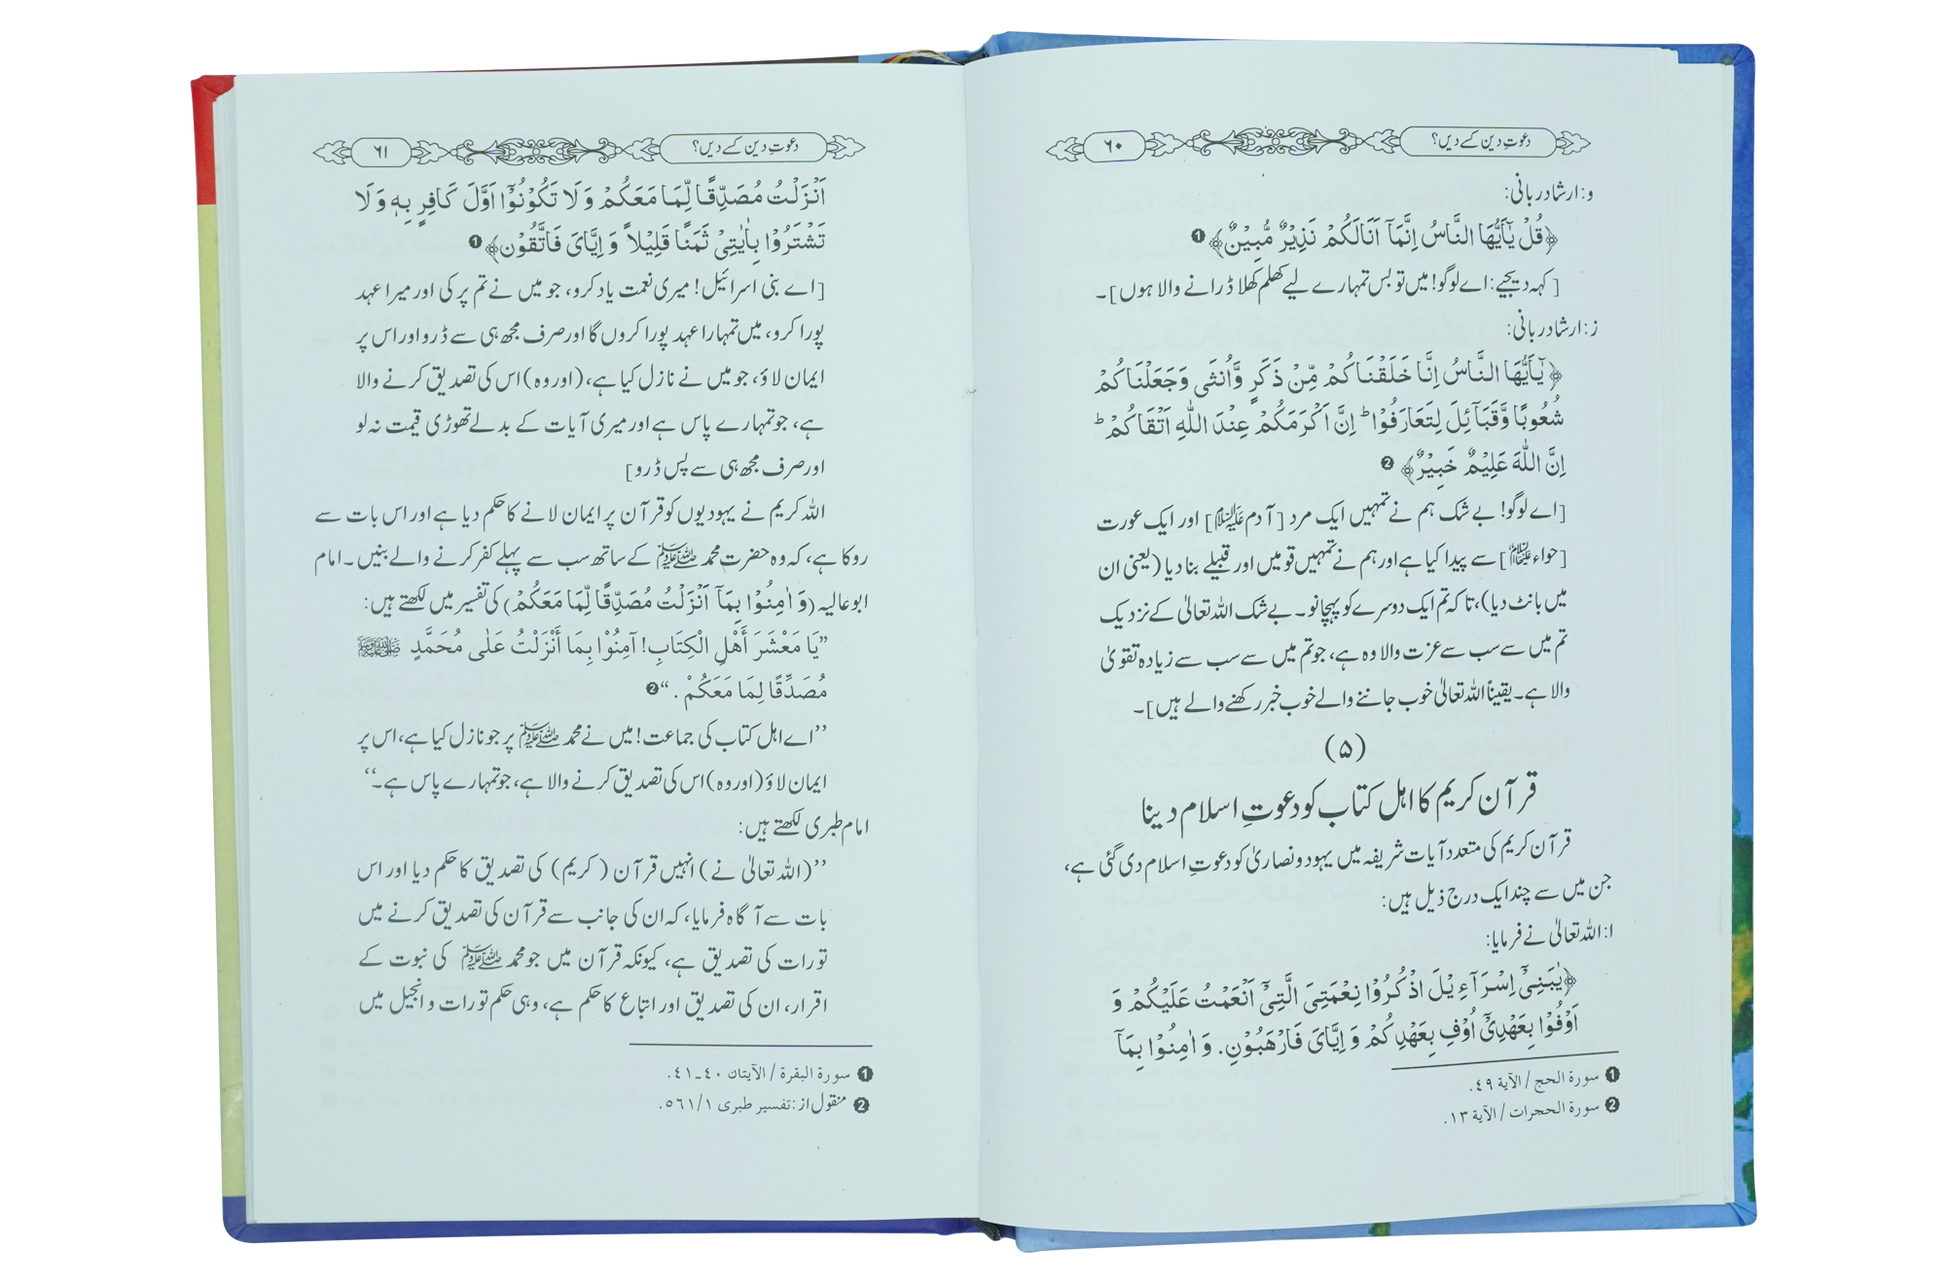 دعوتِ دین کسے دیں؟
٦٠
و: ارشادِ ربانی:
﴿قُلْ يٰٓاَيُّهَا النَّاسُ اِنَّمَآ اَنَا لَكُمْ نَذِيْرٌ مُّبِيْنٌ﴾ ❶
[کہہ دیجیے: اے لوگو! میں تو بس تمہارے لیے کھلم کھلا ڈرانے والا ہوں]۔
ز: ارشادِ ربانی:
﴿يٰٓاَيُّهَا النَّاسُ اِنَّا خَلَقْنَاكُمْ مِّنْ ذَكَرٍ وَّاُنْثٰى وَجَعَلْنَاكُمْ
شُعُوبًا وَّقَبَآئِلَ لِتَعَارَفُوْا ؕ اِنَّ اَكْرَمَكُمْ عِنْدَ اللّٰهِ اَتْقَاكُمْ ؕ
اِنَّ اللّٰهَ عَلِيْمٌ خَبِيْرٌ﴾ ❷
[اے لوگو! بے شک ہم نے تمہیں ایک مرد [آدم علیہ السلام] اور ایک عورت
[حواء علیہا السلام] سے پیدا کیا ہے اور ہم نے تمہیں قومیں اور قبیلے بنا دیا (یعنی ان
میں بانٹ دیا)، تاکہ تم ایک دوسرے کو پہچانو۔ بے شک اللہ تعالیٰ کے نزدیک
تم میں سے سب سے عزت والا وہ ہے، جو تم میں سے سب سے زیادہ تقویٰ
والا ہے۔ یقیناً اللہ تعالیٰ خوب جاننے والے خوب خبر رکھنے والے ہیں]۔
(۵)
قرآن کریم کا اہل کتاب کو دعوتِ اسلام دینا
قرآن کریم کی متعدد آیات شریفہ میں یہود و نصاریٰ کو دعوتِ اسلام دی گئی ہے،
جن میں سے چند ایک درج ذیل ہیں:
ا: اللہ تعالیٰ نے فرمایا:
﴿يٰبَنِىْٓ اِسْرَآءِيْلَ اذْكُرُوْا نِعْمَتِىَ الَّتِىْٓ اَنْعَمْتُ عَلَيْكُمْ وَ
اَوْفُوْا بِعَهْدِىْٓ اُوْفِ بِعَهْدِكُمْ وَ اِيَّاىَ فَارْهَبُوْنِ. وَ اٰمِنُوْا بِمَآ
❶ سورة الحج / الآية ٤٩.
❷ سورة الحجرات / الآية ١٣.
دعوتِ دین کسے دیں؟
٦١
اَنْزَلْتُ مُصَدِّقًا لِّمَا مَعَكُمْ وَ لَا تَكُوْنُوْٓا اَوَّلَ كَافِرٍ بِهٖ وَ لَا
تَشْتَرُوْا بِاٰيٰتِىْ ثَمَنًا قَلِيْلاً وَ اِيَّاىَ فَاتَّقُوْن﴾ ❶
[اے بنی اسرائیل! میری نعمت یاد کرو، جو میں نے تم پر کی اور میرا عہد
پورا کرو، میں تمہارا عہد پورا کروں گا اور صرف مجھ ہی سے ڈرو اور اس پر
ایمان لاؤ، جو میں نے نازل کیا ہے، (اور وہ) اس کی تصدیق کرنے والا
ہے، جو تمہارے پاس ہے اور میری آیات کے بدلے تھوڑی قیمت نہ لو
اور صرف مجھ ہی سے پس ڈرو]
اللہ کریم نے یہودیوں کو قرآن پر ایمان لانے کا حکم دیا ہے اور اس بات سے
روکا ہے، کہ وہ حضرت محمد ﷺ کے ساتھ سب سے پہلے کفر کرنے والے بنیں۔ امام
ابو عالیہ (وَ اٰمِنُوْا بِمَآ اَنْزَلْتُ مُصَدِّقًا لِّمَا مَعَكُمْ) کی تفسیر میں لکھتے ہیں:
”يَا مَعْشَرَ أَهْلِ الْكِتَابِ! آمِنُوْا بِمَا أَنْزَلْتُ عَلٰى مُحَمَّدٍ ﷺ
مُصَدِّقًا لِمَا مَعَكُمْ.“ ❷
’’اے اہل کتاب کی جماعت! میں نے محمد ﷺ پر جو نازل کیا ہے، اس پر
ایمان لاؤ (اور وہ) اس کی تصدیق کرنے والا ہے، جو تمہارے پاس ہے۔‘‘
امام طبری لکھتے ہیں:
’’(اللہ تعالیٰ نے) انہیں قرآن (کریم) کی تصدیق کا حکم دیا اور اس
بات سے آگاہ فرمایا، کہ ان کی جانب سے قرآن کی تصدیق کرنے میں
تورات کی تصدیق ہے، کیونکہ قرآن میں جو محمد ﷺ کی نبوت کے
اقرار، ان کی تصدیق اور اتباع کا حکم ہے، وہی حکم تورات و انجیل میں
❶ سورة البقرة / الآيتان ٤٠-٤١.
❷ منقول از: تفسیر طبری ٥٦١/١.